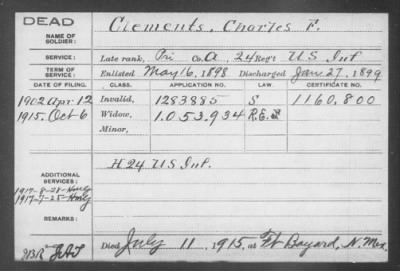 DEAD
NAME OF SOLDIER: Clements, Charles F.
SERVICE: Late rank, Pri Co. A, 24 Reg't U S Inf
TERM OF SERVICE: Enlisted May 16, 1898 Discharged Jan 27, 1899
DATE OF FILING. CLASS. APPLICATION NO. LAW. CERTIFICATE NO.
1902 Apr 12 Invalid, 1283885 S 1160,800
1915. Oct 6 Widow, 1.053.934
Minor,
ADDITIONAL SERVICES: H 24 U S Inf.
1917-8-28-
1917-7-25-
REMARKS:
Died July 11, 1915, at Ft Bayard, N. Mex.